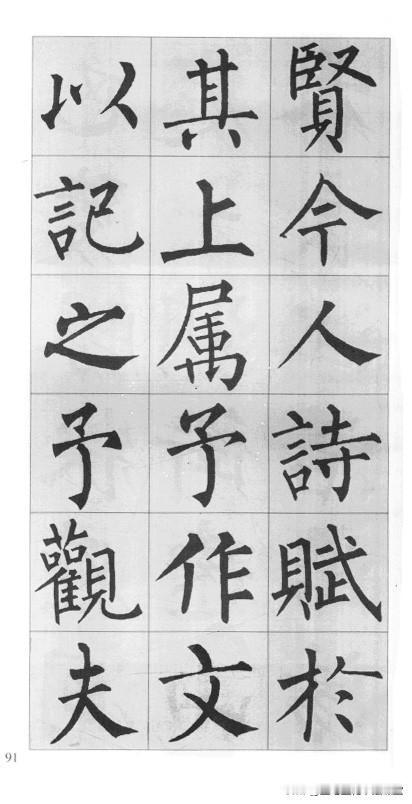 賢今人詩賦於
其上属予作文
以記之予觀夫
91